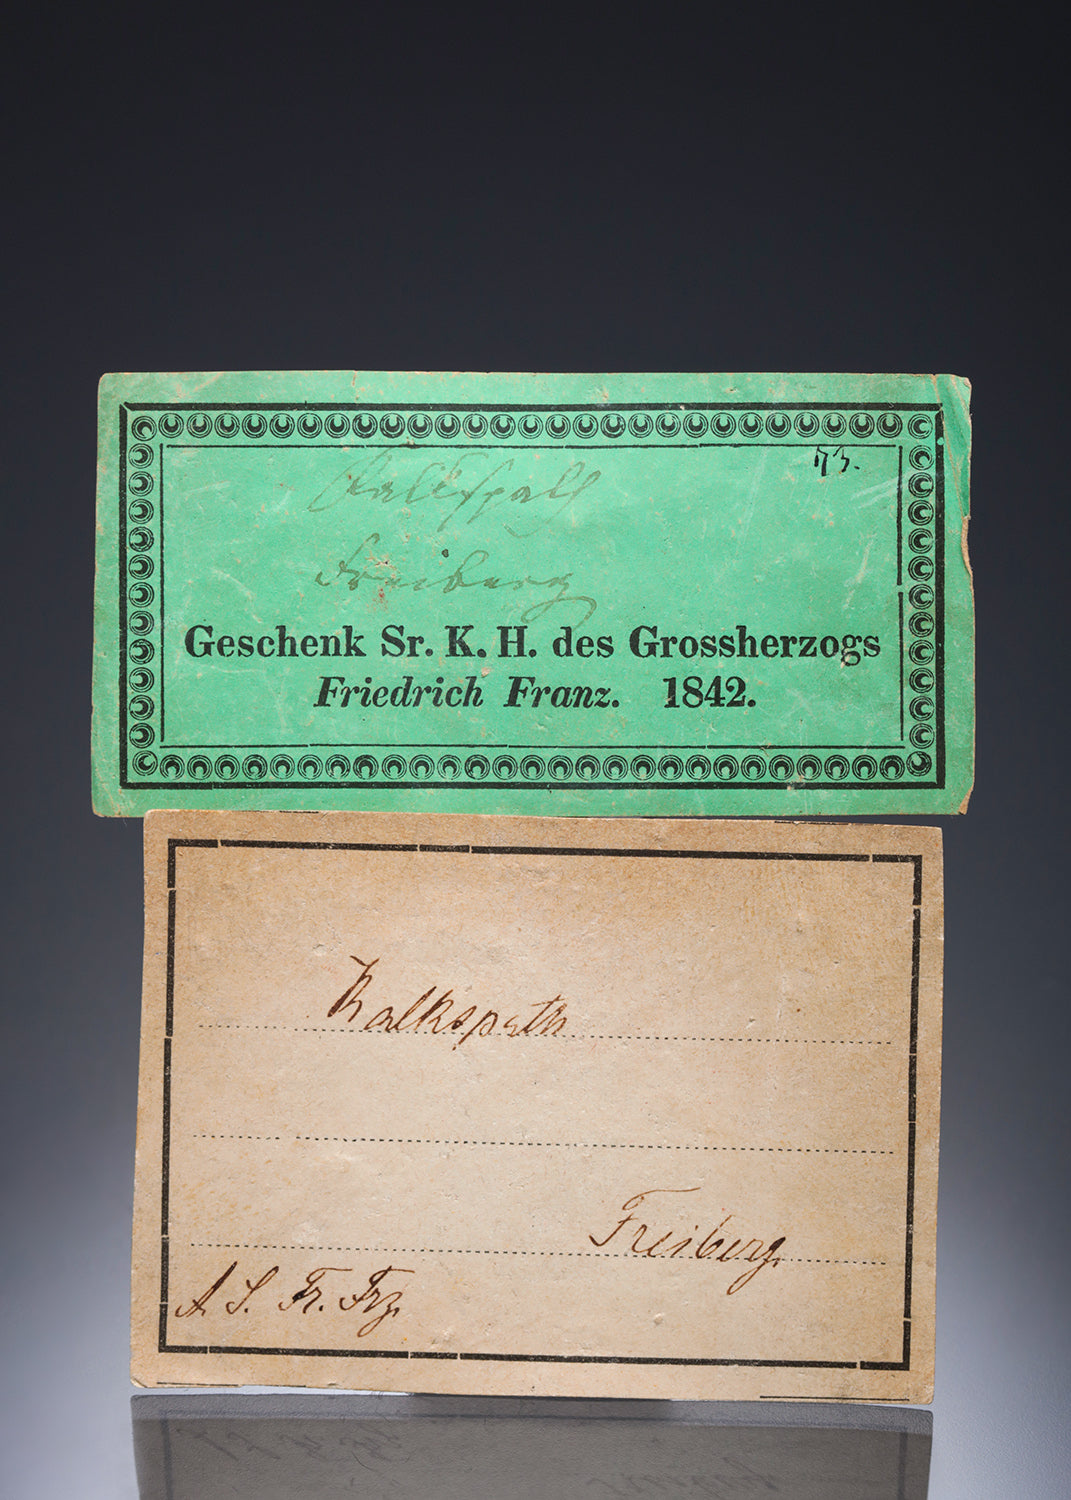 73.
Kalkspath
Freiberg
Geschenk Sr. K. H. des Grossherzogs
Friedrich Franz. 1842.
Kalkspath
Freiberg.
A. S. Fr. Frz.